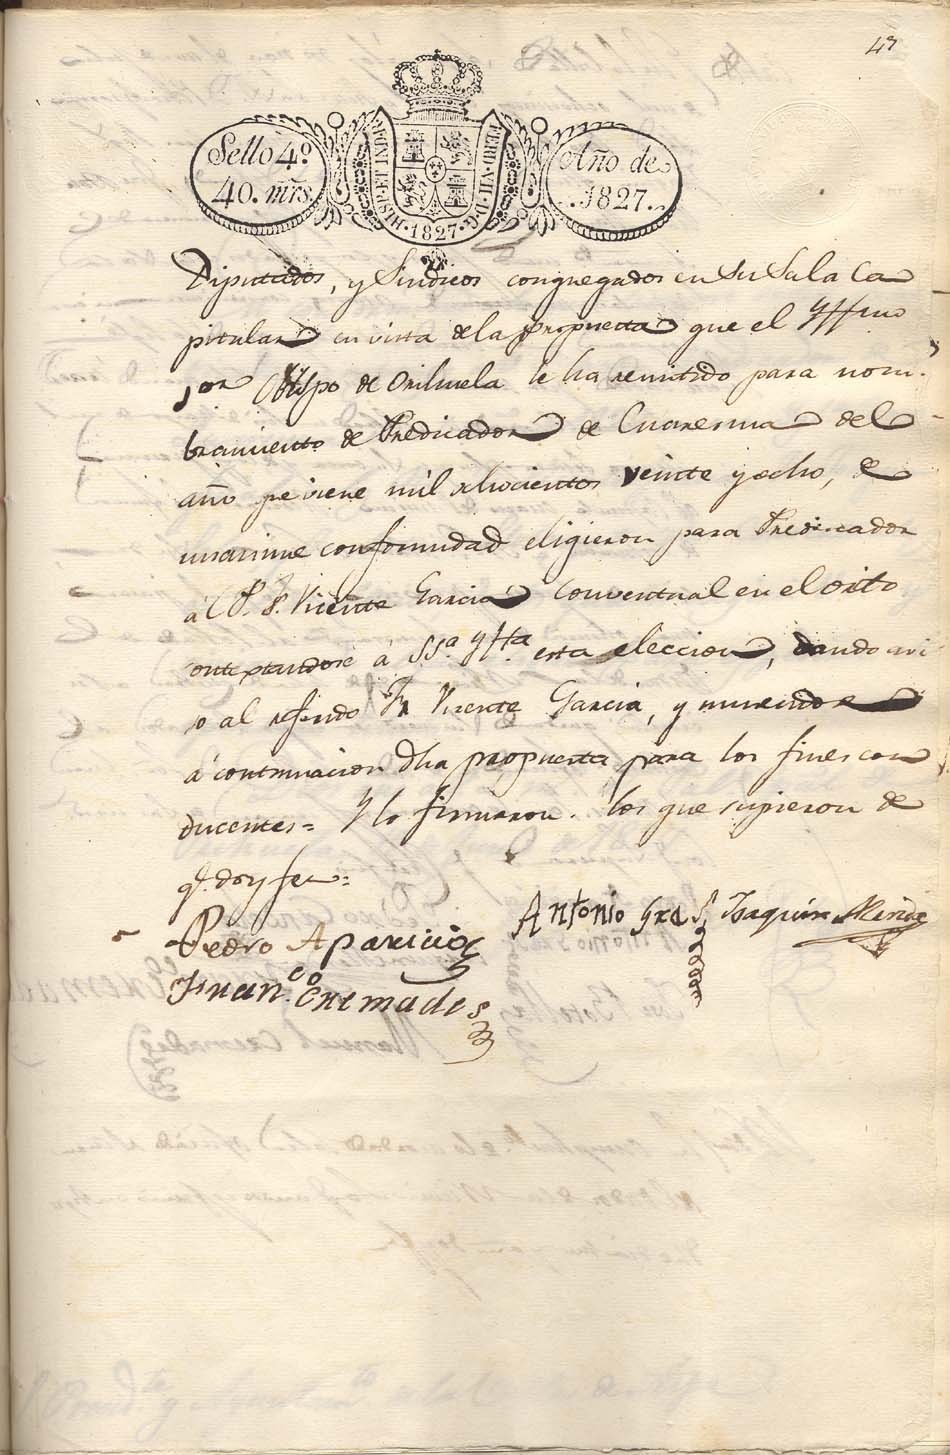 47
Sello 4º
40. mrs.
HISP. ET IND. R.
FERD. VII. D. G.
1827
Año de
1827.
Diputados, y Sindicos congregados en su Sala Ca
pitular en vista de la propuesta que el Yllmo
sor Obispo de Orihuela le ha remitido para nom
bramiento de Predicador de Cuaresma del
año que viene mil ochocientos veinte y ocho, de
unanime conformidad eligieron para Predicador
á el P. F. Vicente Garcia Conventual en el
á SSª. Yllª. esta eleccion, dando avi
so al referido Fr Vicente Garcia, y uniendose
á continuacion dha propuesta para los fines con
ducentes= Y lo firmaron los que supieron de
q.e doy fee=
Antonio Gra Joaquin
Pedro Aparicio
Fran.co Cremades